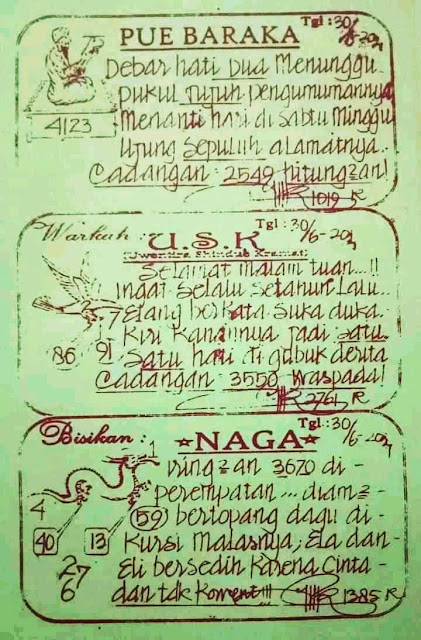 Tgl: 30/6-2021
PUE BARAKA
Debar hati Dua Menunggu
pukul Tujuh pengumumannya
Menanti hari di Sabtu Minggu
Ujung Sepuluh alamatnya..
Cadangan : 2549 hitung2an!
4123
1019 R
Warkah :
Tgl: 30/6-2021
U.S.K
(Uwentira Shindub Kramat)
Selamat malam tuan...!!
ingat selalu setahun lalu..
Elang berkata suka duka.
Kiri Kanannya jadi satu
Satu hari di gubuk derita
Cadangan : 3550 Waspada!
7
86
91
2761 R
Bisikan :
Tgl: 30/6-2021
★NAGA★
1
iring2an 3670 di-
perempatan ... diam2-
(59) bertopang dagu di-
Kursi Malasnya, Ela dan-
Eli bersedih Karena Cinta-
dan tdk Koment!!!
4
40
13
27
6
1385 R